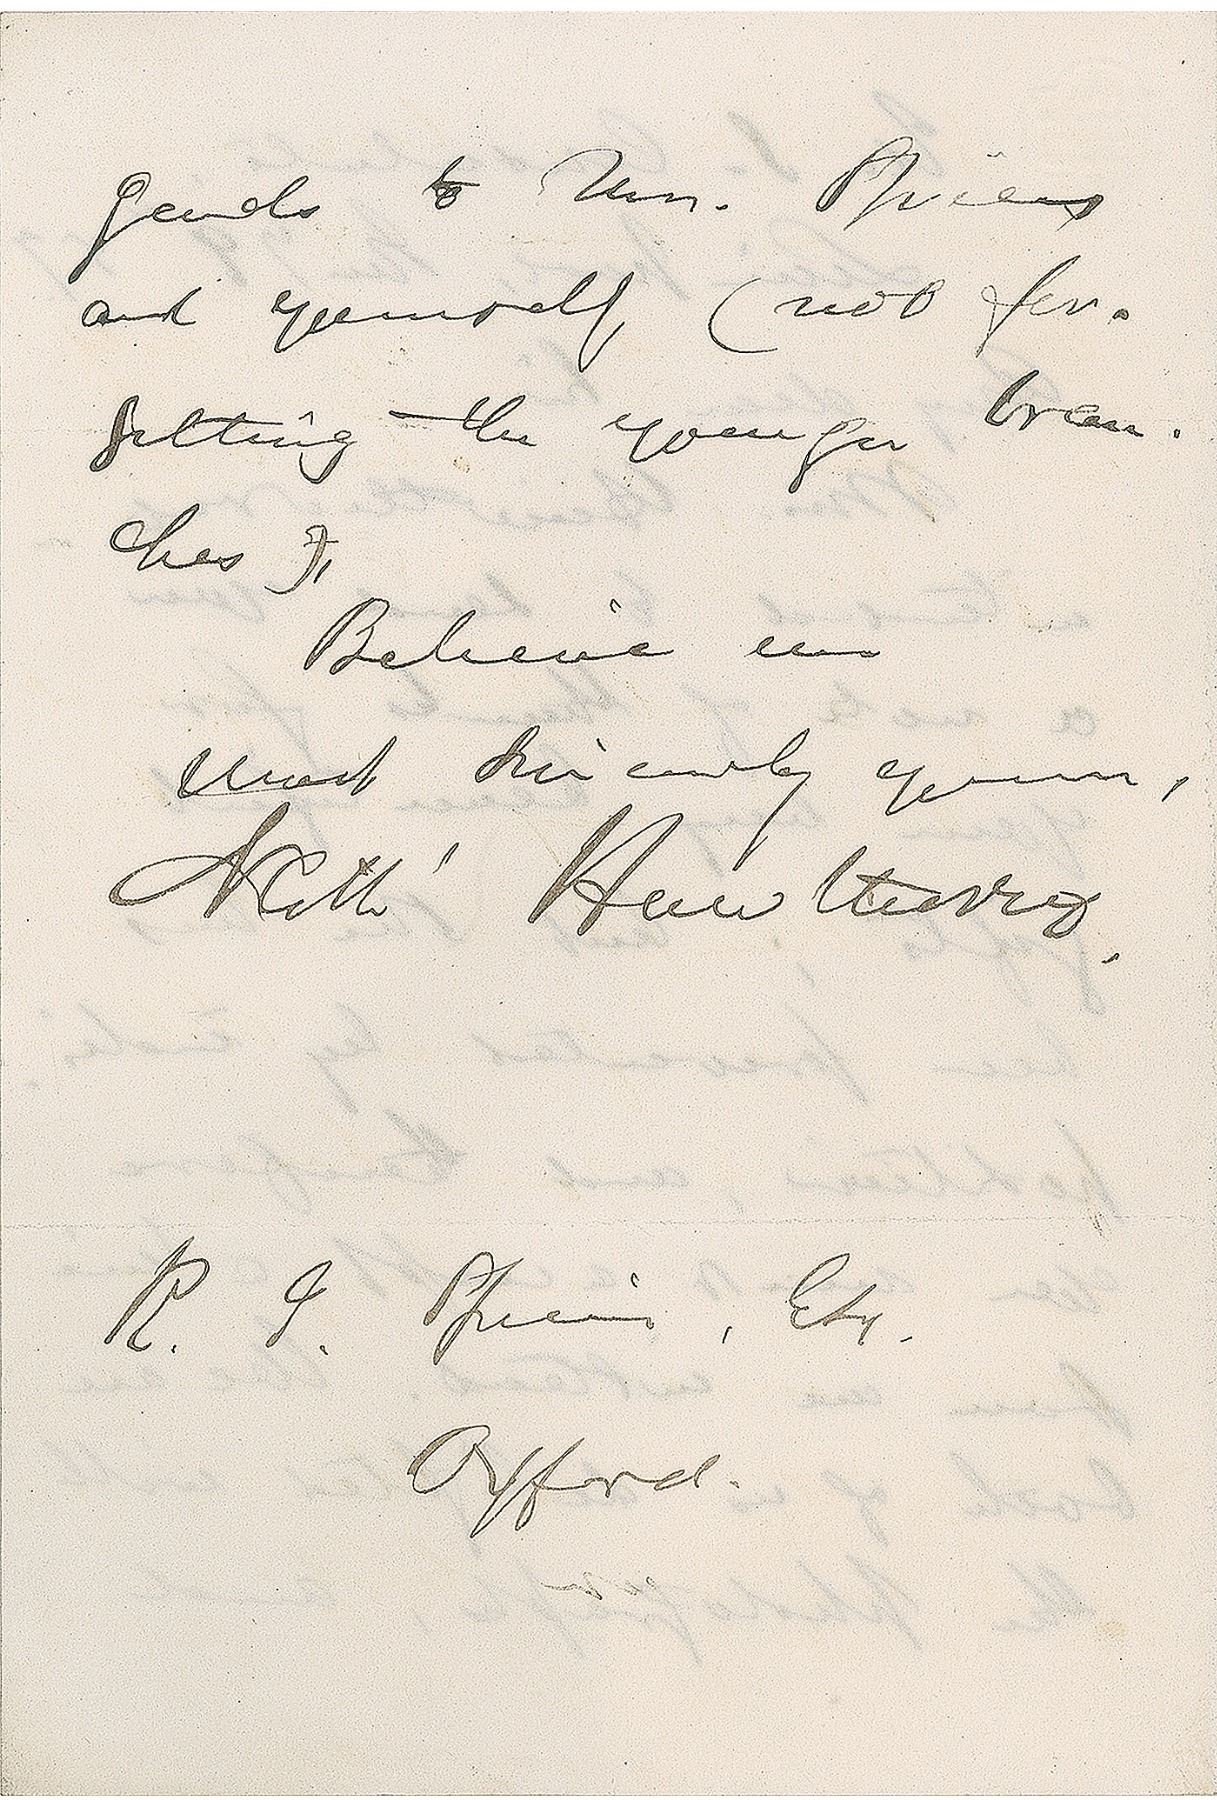 gards to Mrs. Spiers
and yourself, (not for-
getting the younger bran-
ches),
Believe me
most sincerely yours,
Nathˡ Hawthorne.
R. J. Spiers, Esq.
Oxford.